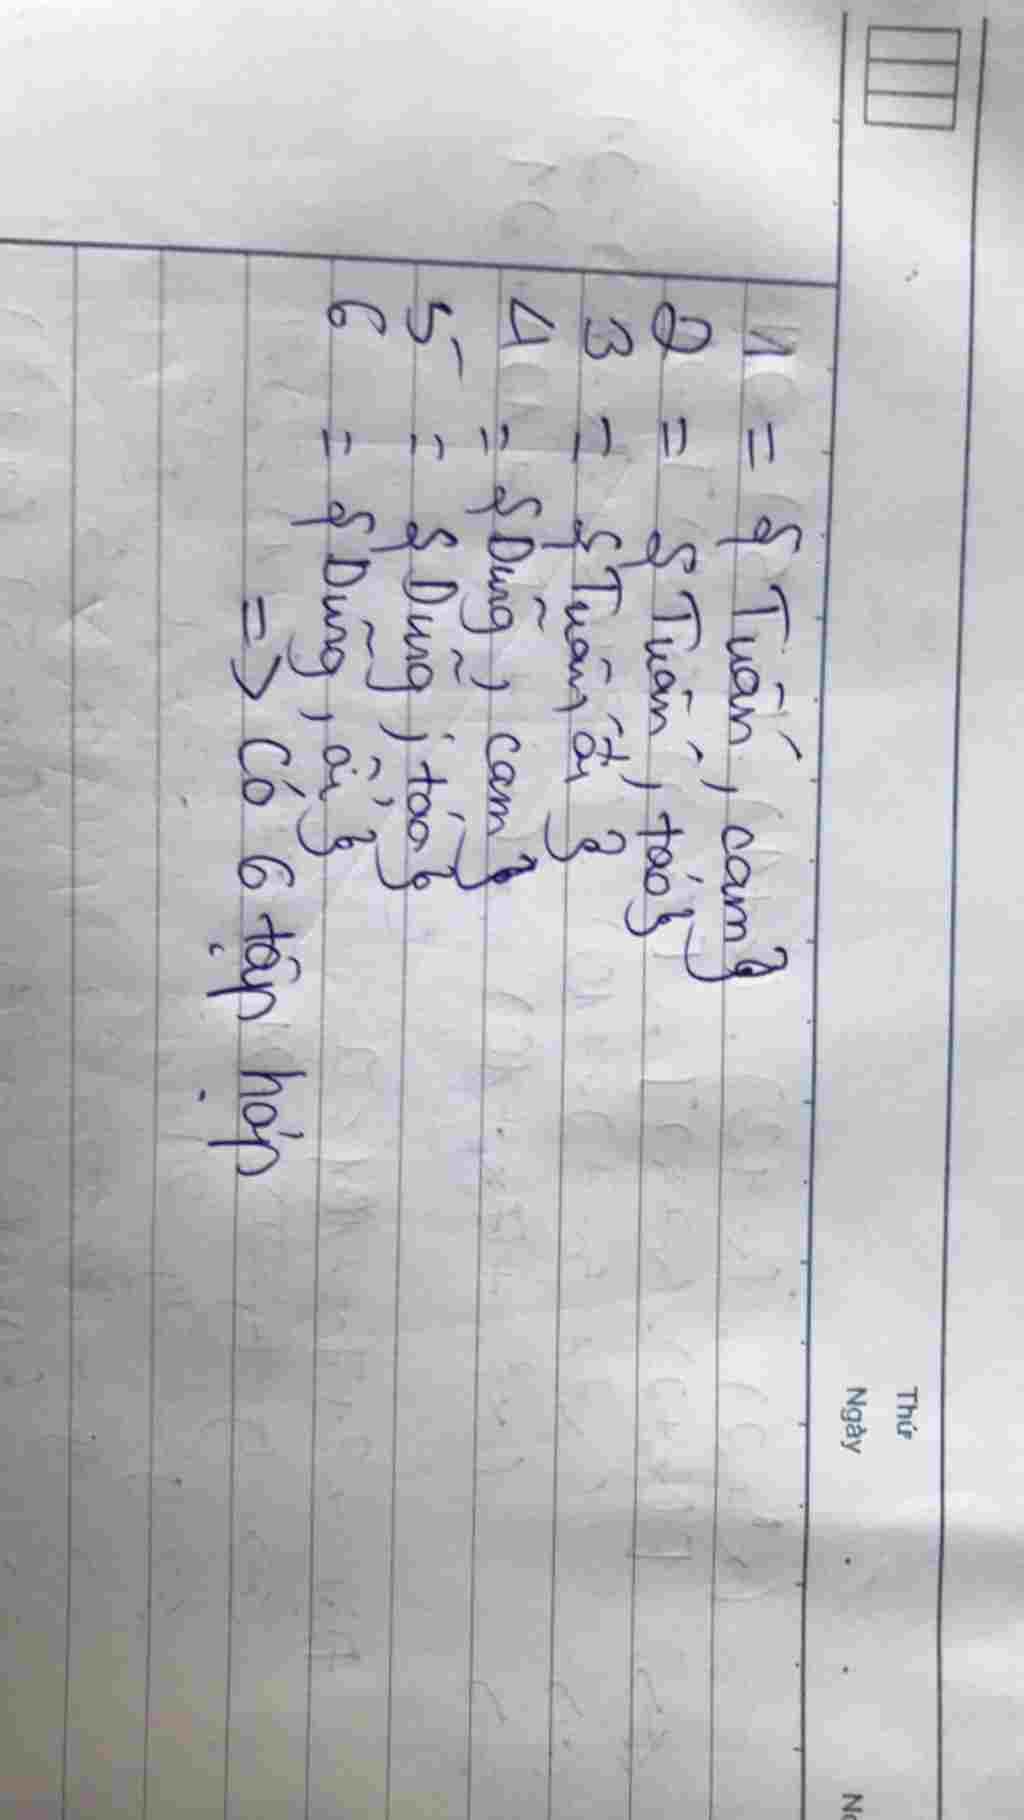 Thứ
Ngày
1 = {Tuấn, cam}
2 = {Tuấn, táo}
3 = {Tuấn, ổi}
4 = {Dũng, cam}
5 = {Dũng, táo}
6 = {Dũng, ổi}
=> Có 6 tập hợp